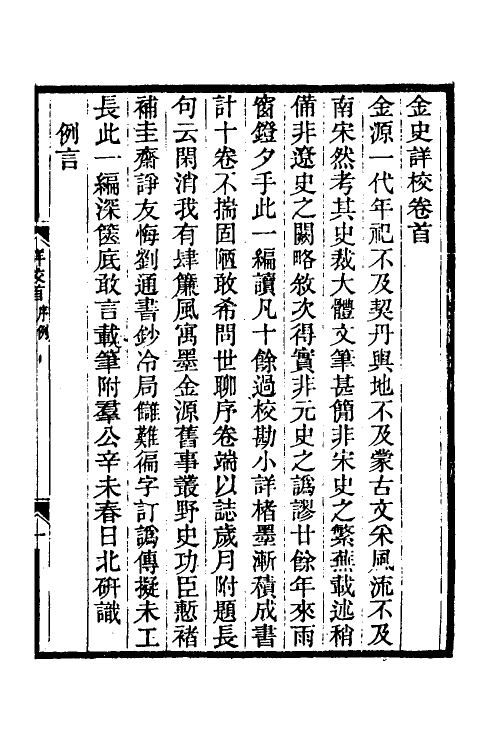 金史詳校卷首
金源一代年祀不及契丹輿地不及蒙古文采風流不及
南宋然考其史裁大體文筆甚簡非宋史之繁蕪載述稍
備非遼史之闕略敘次得實非元史之譌謬廿餘年來雨
窗鐙夕手此一編讀凡十餘過校勘小詳楮墨漸積成書
計十卷不揣固陋敢希問世聊序卷端以誌歲月附題長
句云閑消我有肆簾風寓墨金源舊事叢野史功臣慙褚
補圭齋諍友悔劉通書鈔冷局讎難徧字訂譌傳擬未工
長此一編深篋底敢言載筆附羣公辛未春日北硏識
例言
詳校首 序例 一